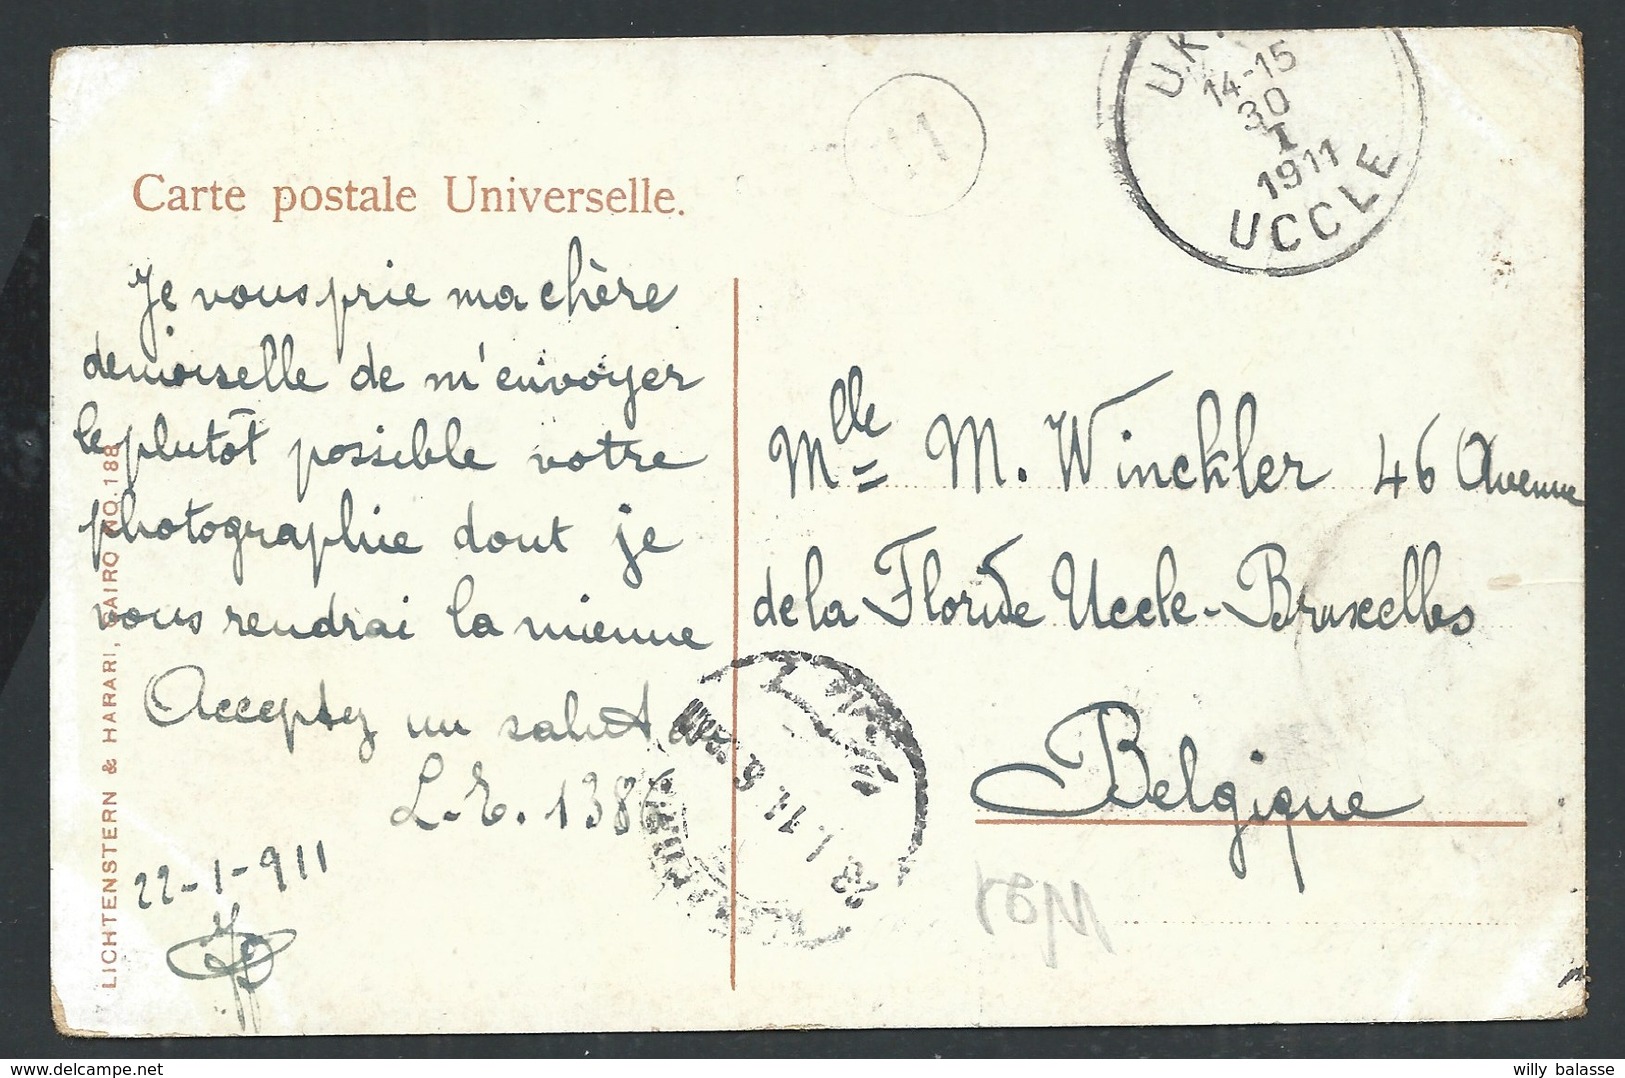 Carte postale Universelle.
Je vous prie ma chère
demoiselle de m'envoyer
le plutôt possible votre
photographie dont je
vous rendrai la mienne
Acceptez un salut
L.E. 1386
22-1-911
LICHTENSTERN & HARARI, CAIRO NO. 188
11
14-15
30
I
1911
UCCLE
Mlle M. Winckler 46 Avenue
de la Floride Uccle-Bruxelles
Belgique
willy balasse